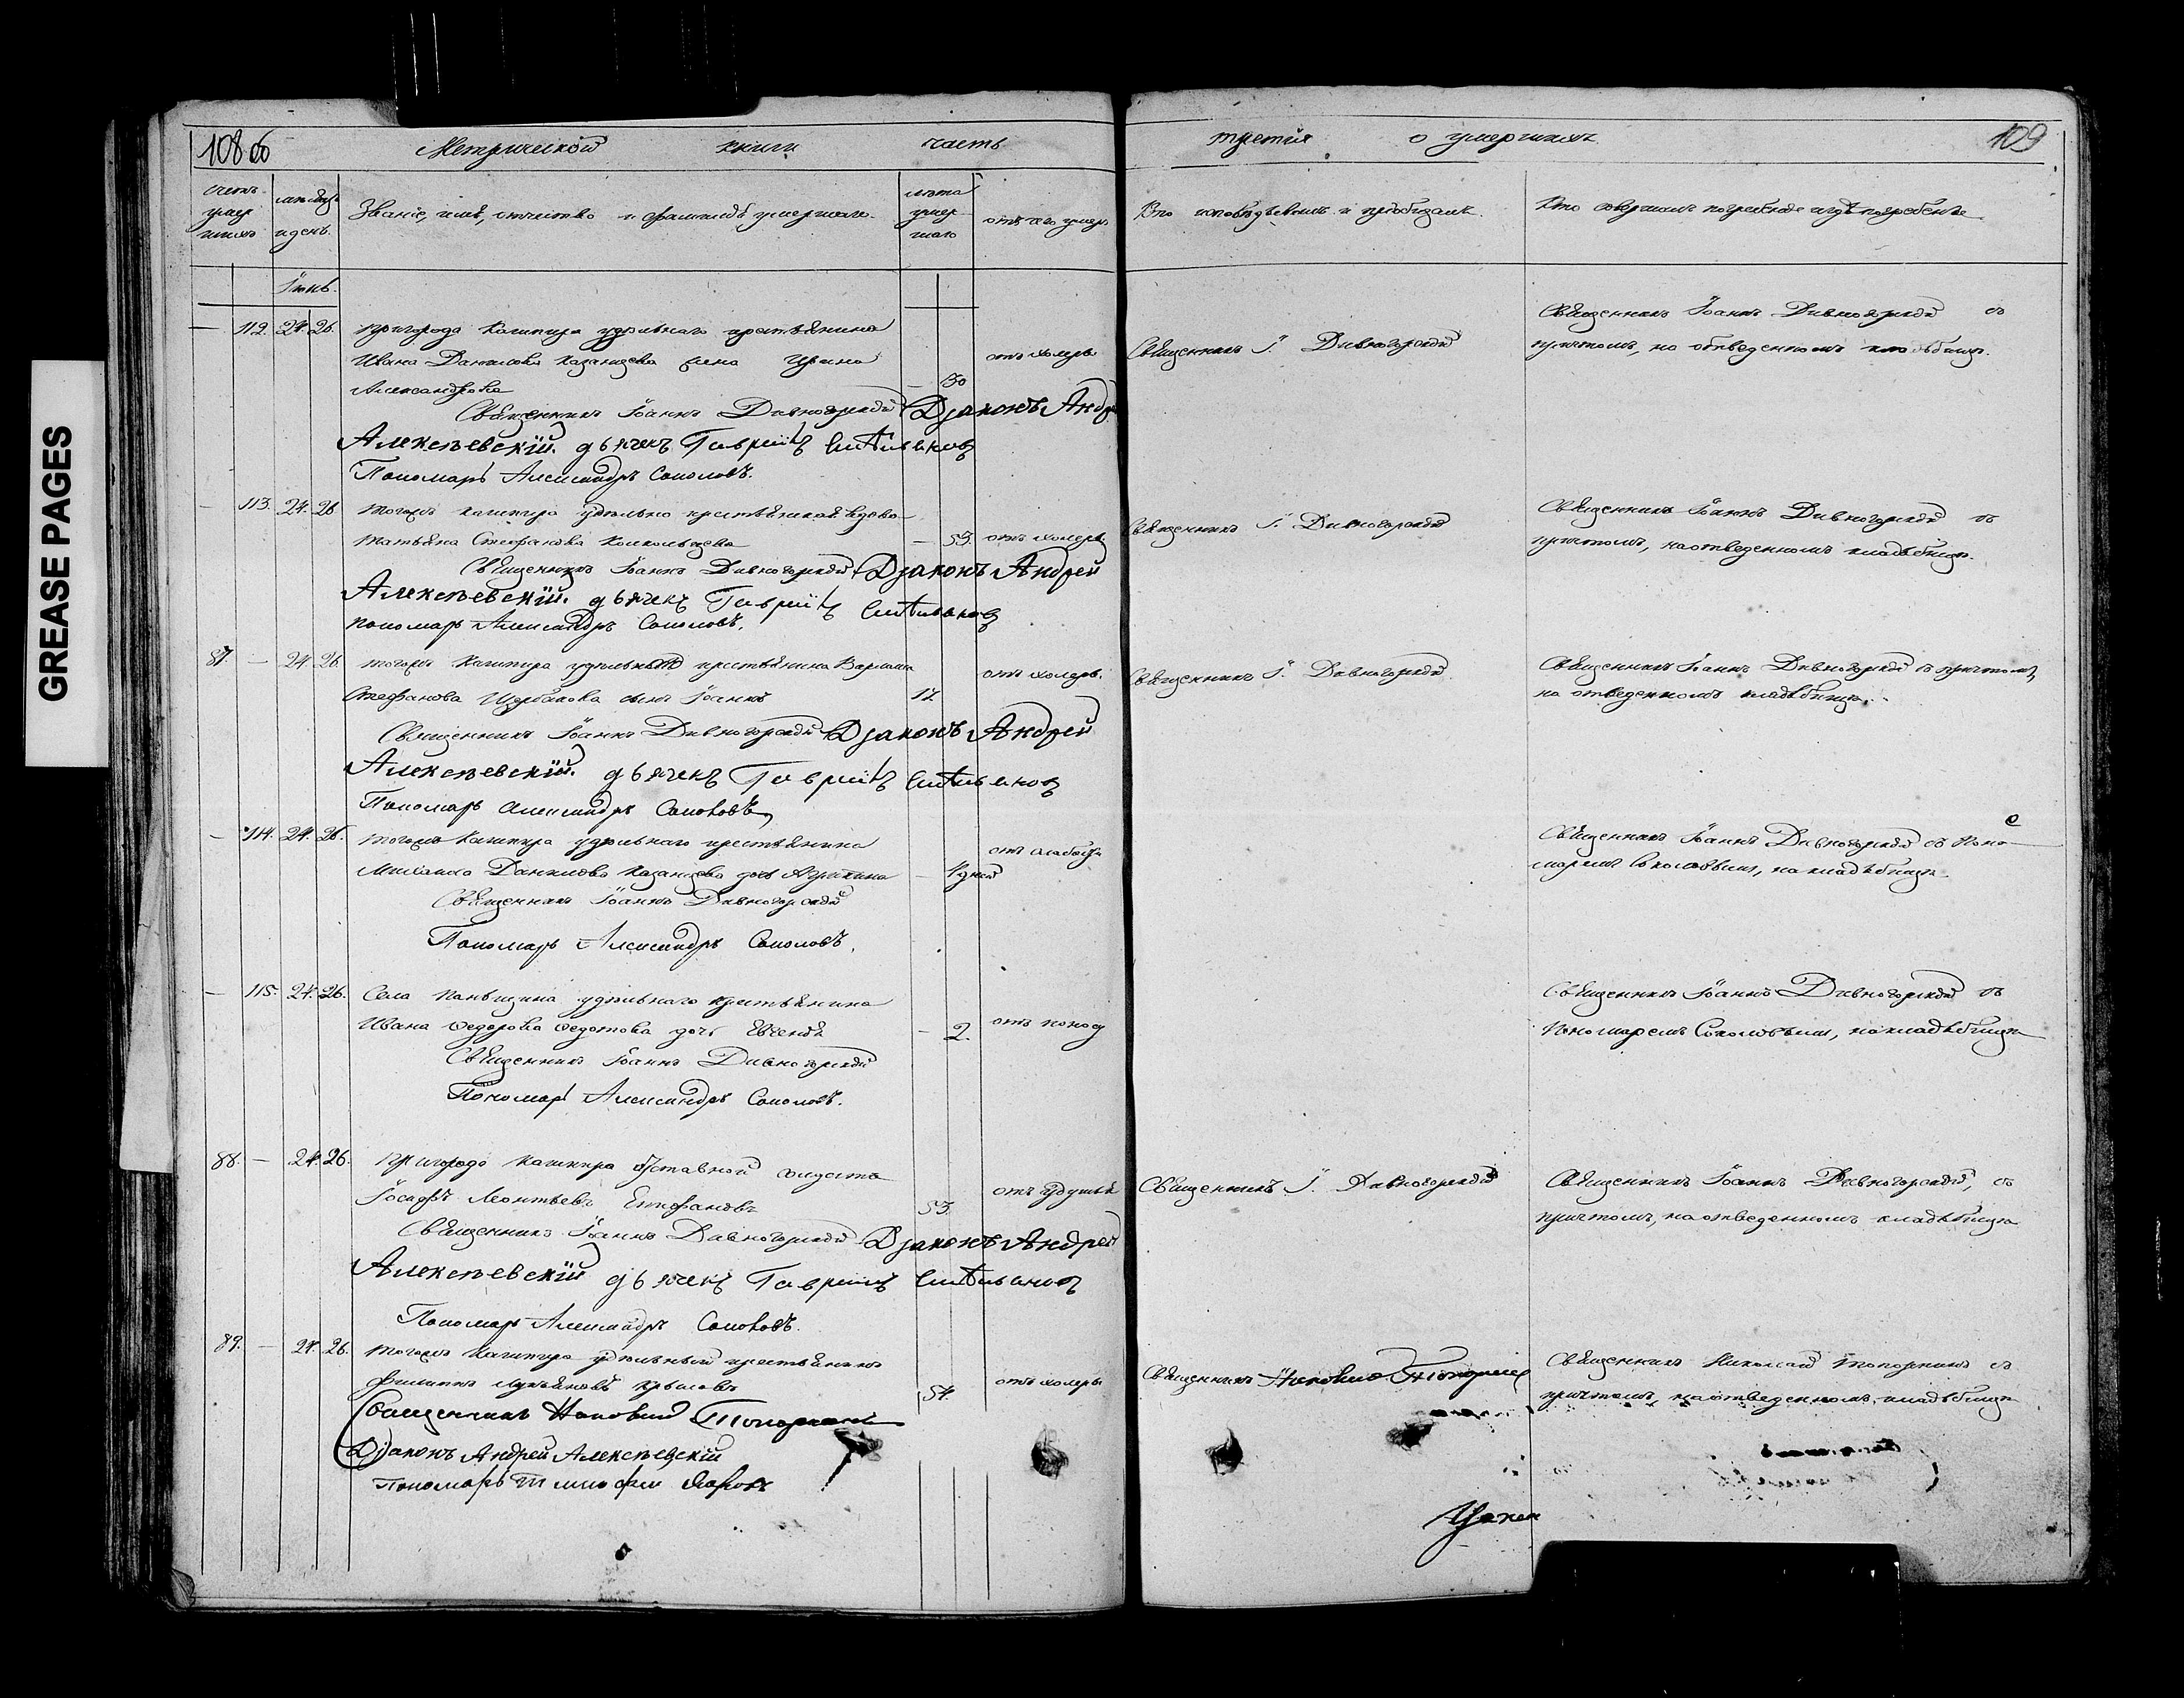 108 об
Метрической книги часть
третия о умершихъ
109
Счетъ умершихъ
месяцъ и день.
Званіе, имя, отчество и фамилія умершаго.
лета умершаго
отъ чего умеръ
Кто исповедывалъ и пріобщалъ.
Кто совершалъ погребеніе и где погребены
Іюнь.
— 112. 24. 26. пригорода Кашпира удельнаго крестьянина
Ивана Данилова Казанцева жена Ирина
Александрова
— 30
отъ холеры
Священникъ І. Дивногорскій
Священникъ Іоаннъ Дивногорскій съ
причтомъ, на отведенномъ кладбище.
Священникъ Іоаннъ Дивногорскій Діаконъ Андрей
Алексеевскій. дьячекъ Гавріилъ
Пономарь Александръ Соколовъ.
— 113. 24. 26 тогожъ Кашпира удельно крестьянская вдова
Татьяна Стефанова
— 59. отъ холеры
Священникъ І. Дивногорскій
Священникъ Іоаннъ Дивногорскій съ
причтомъ, на отведенномъ кладбище.
Священникъ Іоаннъ Дивногорскій Діаконъ Андрей
Алексеевскій. дьячекъ Гавріилъ
пономарь Александръ Соколовъ.
87. — 24. 26. тогожъ Кашпира удельнаго крестьянина
Стефанова Щербакова сынъ Іоаннъ
12
отъ холеры.
Священникъ І. Дивногорскій.
Священникъ Іоаннъ Дивногорскій съ причтомъ,
на отведенномъ кладбище.
Священникъ Іоаннъ Дивногорскій Діаконъ Андрей
Алексеевскій. дьячекъ Гавріилъ
Пономарь Александръ Соколовъ
— 114. 24. 26. тогожъ Кашпира удельнаго крестьянина
Михаила Данилова Казанцева дочь
— дней
отъ слабости
Священникъ Іоаннъ Дивногорскій съ Поно-
маремъ Соколовымъ, на кладбище.
Священникъ Іоаннъ Дивногорскій
Пономарь Александръ Соколовъ.
— 115. 24. 26. Села Паньшина удельнаго крестьянина
Ивана Федорова Федотова дочь
— 2.
отъ поносу
Священникъ Іоаннъ Дивногорскій съ
Пономаремъ Соколовымъ, на кладбище
Священникъ Іоаннъ Дивногорскій
Пономарь Александръ Соколовъ.
88. — 24. 26. Пригорода Кашпира отставной солдатъ
Іосифъ Леонтьевъ Епифановъ
53.
отъ удушья
Священникъ І. Дивногорскій
Священникъ Іоаннъ Дивногорскій, съ
причтомъ, на отведенномъ кладбище
Священникъ Іоаннъ Дивногорскій Діаконъ Андрей
Алексеевскій дьячекъ Гавріилъ
Пономарь Александръ Соколовъ.
89. — 24. 26. тогожъ Кашпира удельный крестьянинъ
Филиппъ Крыловъ
54.
отъ холеры
Священникъ
Священникъ Николай Топорнинъ съ
причтомъ, на отведенномъ кладбище
Священникъ Николай Топорнинъ
Діаконъ Андрей Алексеевскій
Пономарь Тимофей
GREASE PAGES